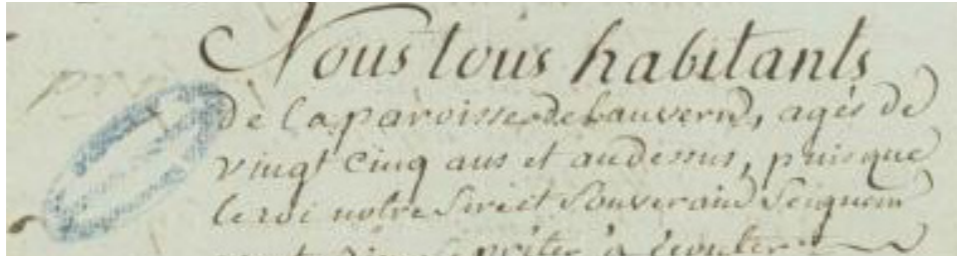 Nous tous habitants
de la paroisse de bauvernd, agés de
vingt cinq ans et au dessus, puisque
le roi notre Sire et Souveraind Seigneur
prêter à écouter